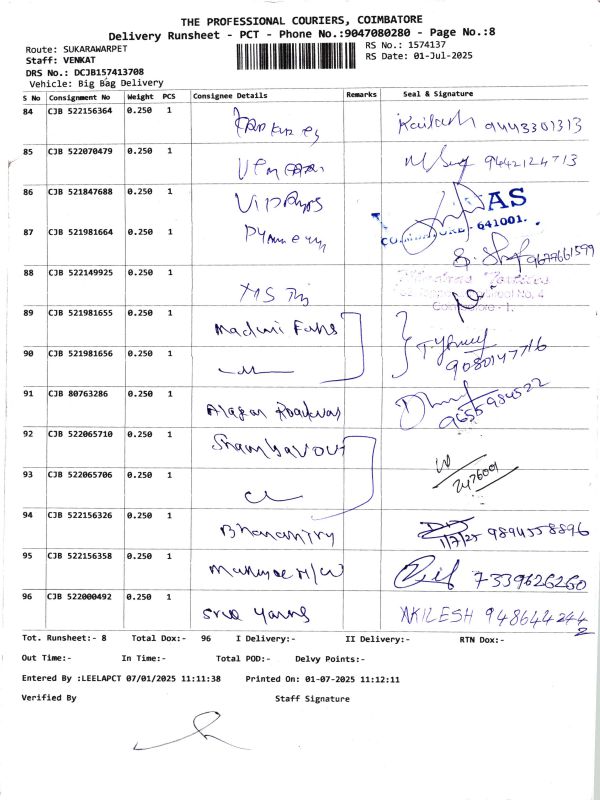 THE PROFESSIONAL COURIERS, COIMBATORE
Delivery Runsheet - PCT - Phone No.:9047080280 - Page No.:8
Route: SUKARAWARPET
RS No.: 1574137
Staff: VENKAT
RS Date: 01-Jul-2025
DRS No.: DCJB157413708
Vehicle: Big Bag Delivery
S No Consignment No Weight PCS Consignee Details Remarks Seal & Signature
84 CJB 522156364 0.250 1 Kailash 9443301313
85 CJB 522070479 0.250 1 9442124713
86 CJB 521847688 0.250 1 AS
COIMBATORE - 641001.
87 CJB 521981664 0.250 1 9677661599
88 CJB 522149925 0.250 1 No, 4
89 CJB 521981655 0.250 1 Maduri Fabs
90 CJB 521981656 0.250 1 9080147716
91 CJB 80763286 0.250 1 9655984522
92 CJB 522065710 0.250 1
93 CJB 522065706 0.250 1 2476001
94 CJB 522156326 0.250 1 1/7/25 9894558896
95 CJB 522156358 0.250 1 7339626260
96 CJB 522000492 0.250 1 Sree Yarns AKILESH 9486442442
Tot. Runsheet:- 8 Total Dox:- 96 I Delivery:- II Delivery:- RTN Dox:-
Out Time:- In Time:- Total POD:- Delvy Points:-
Entered By :LEELAPCT 07/01/2025 11:11:38 Printed On: 01-07-2025 11:12:11
Verified By Staff Signature